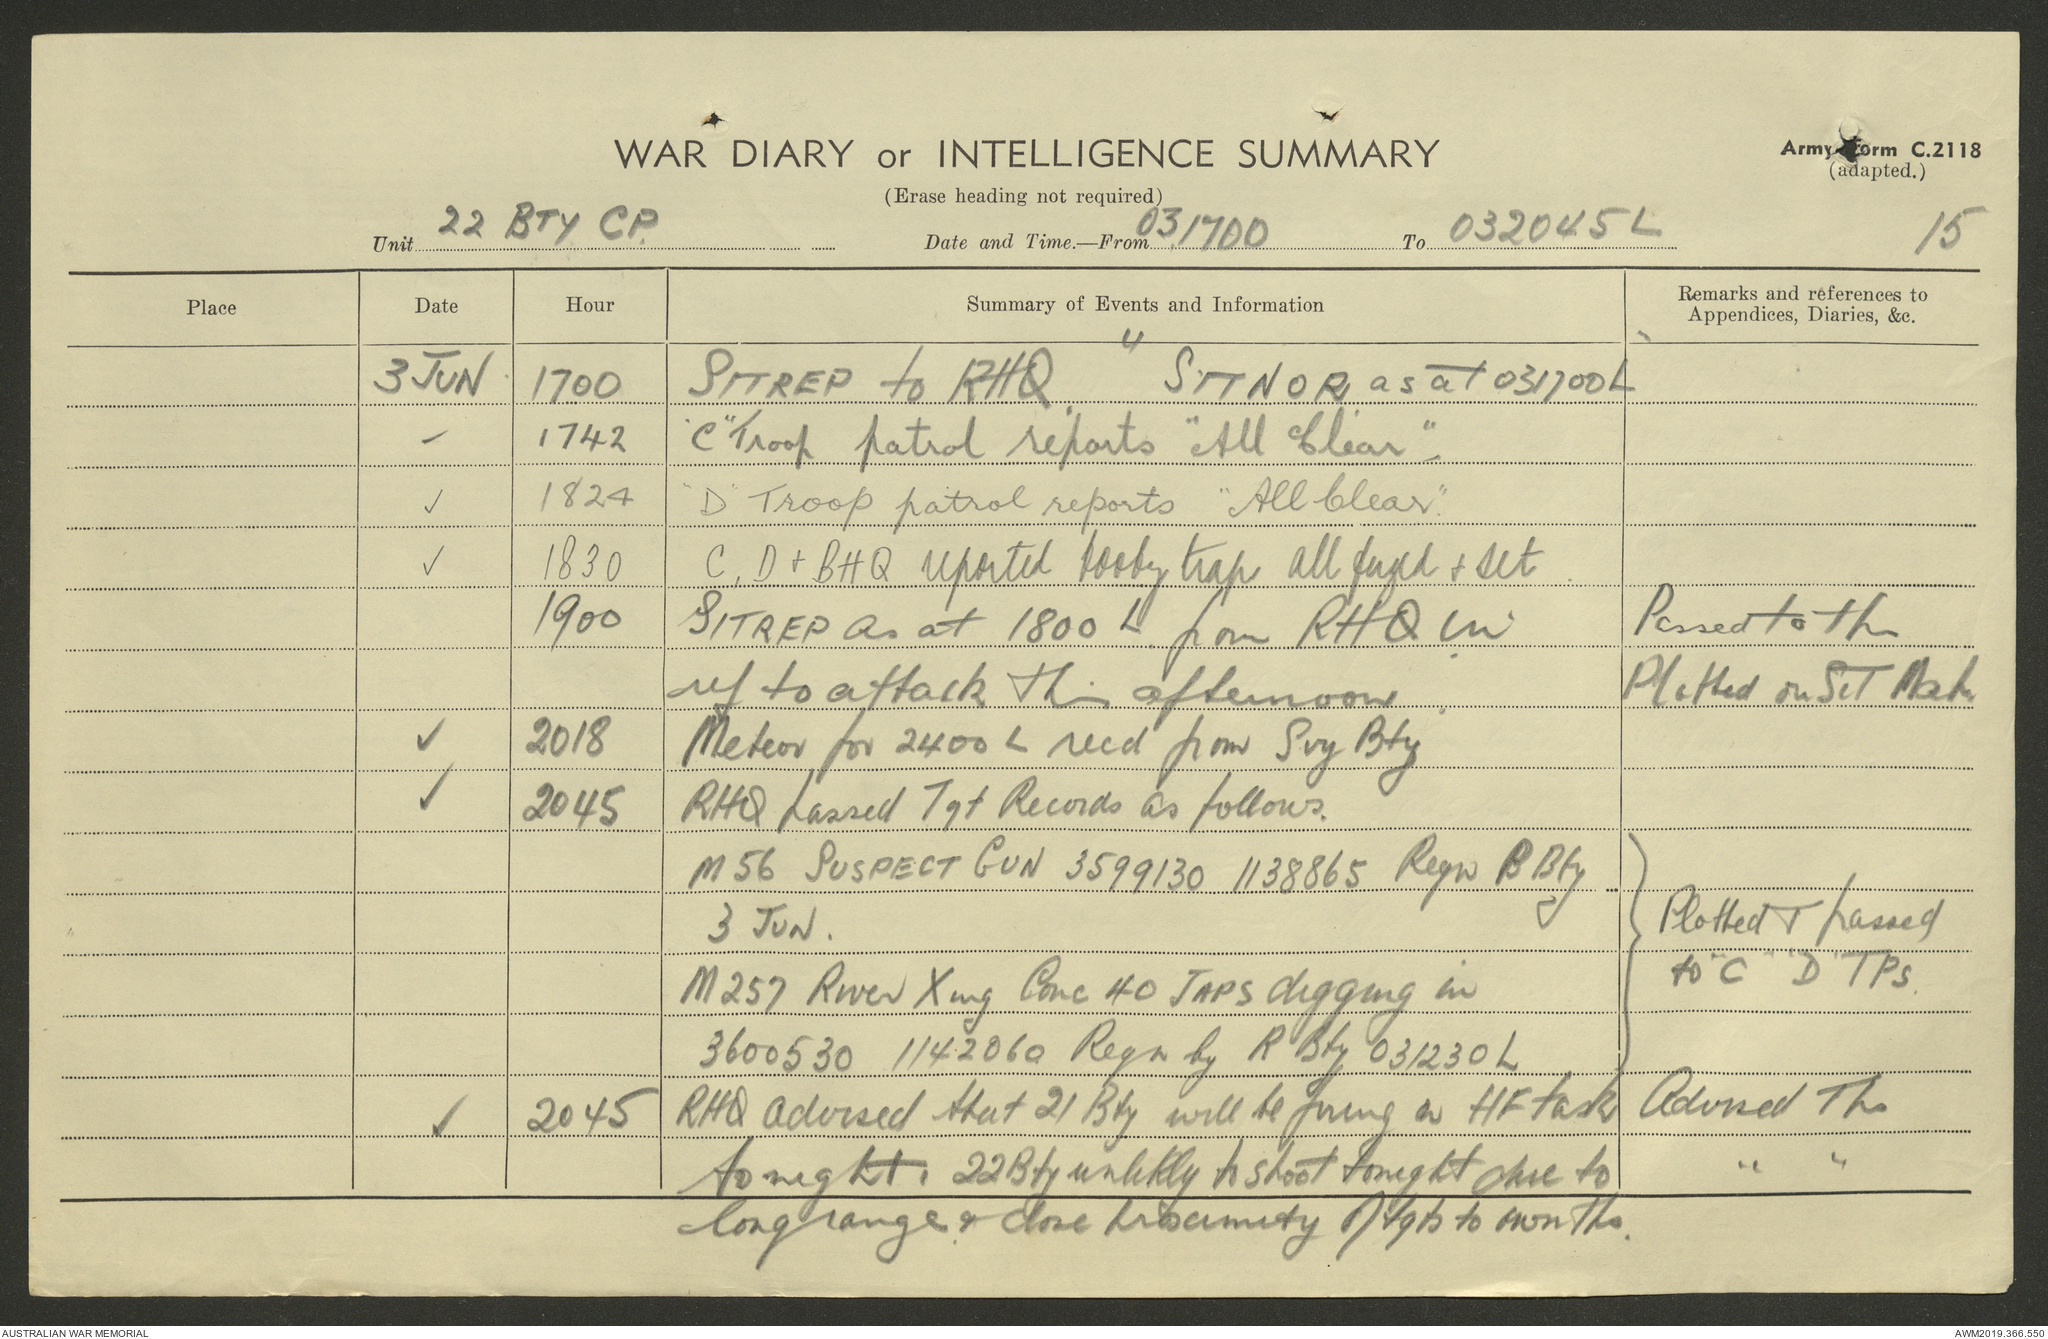 WAR DIARY or INTELLIGENCE SUMMARY
Army Form C.2118
(adapted.)
(Erase heading not required)
Unit 22 BTY CP. Date and Time.—From 031700 To 032045L 15
Place Date Hour Summary of Events and Information Remarks and references to Appendices, Diaries, &c.
3 JUN 1700 SITREP to RHQ. " SITNOR as at 031700L
1742 "C" Troop patrol reports "All Clear".
✓ 1824 "D" Troop patrol reports "All Clear".
✓ 1830 C, D + BHQ reported booby traps all fuzed + set
1900 SITREP as at 1800 L from RHQ in Passed to Tps
ref to attack this afternoon. Plotted on SIT Map
✓ 2018 Meteor for 2400 L recd from Svy Bty
✓ 2045 RHQ passed Tgt Records as follows.
M 56 SUSPECT GUN 3599130 1138865 Regn B Bty
3 JUN. Plotted + passed
to "C" "D" TPs.
M 257 River Xing Conc 40 JAPS digging in
3600530 1142060 Regn by R Bty 031230 L
✓ 2045 RHQ advised that 21 Bty will be firing on HF task Advised Tps
tonight. 22 Bty unlikly to shoot tonight due to " "
long range & close proximity of tgts to own Tps.
AUSTRALIAN WAR MEMORIAL AWM2019.366.550